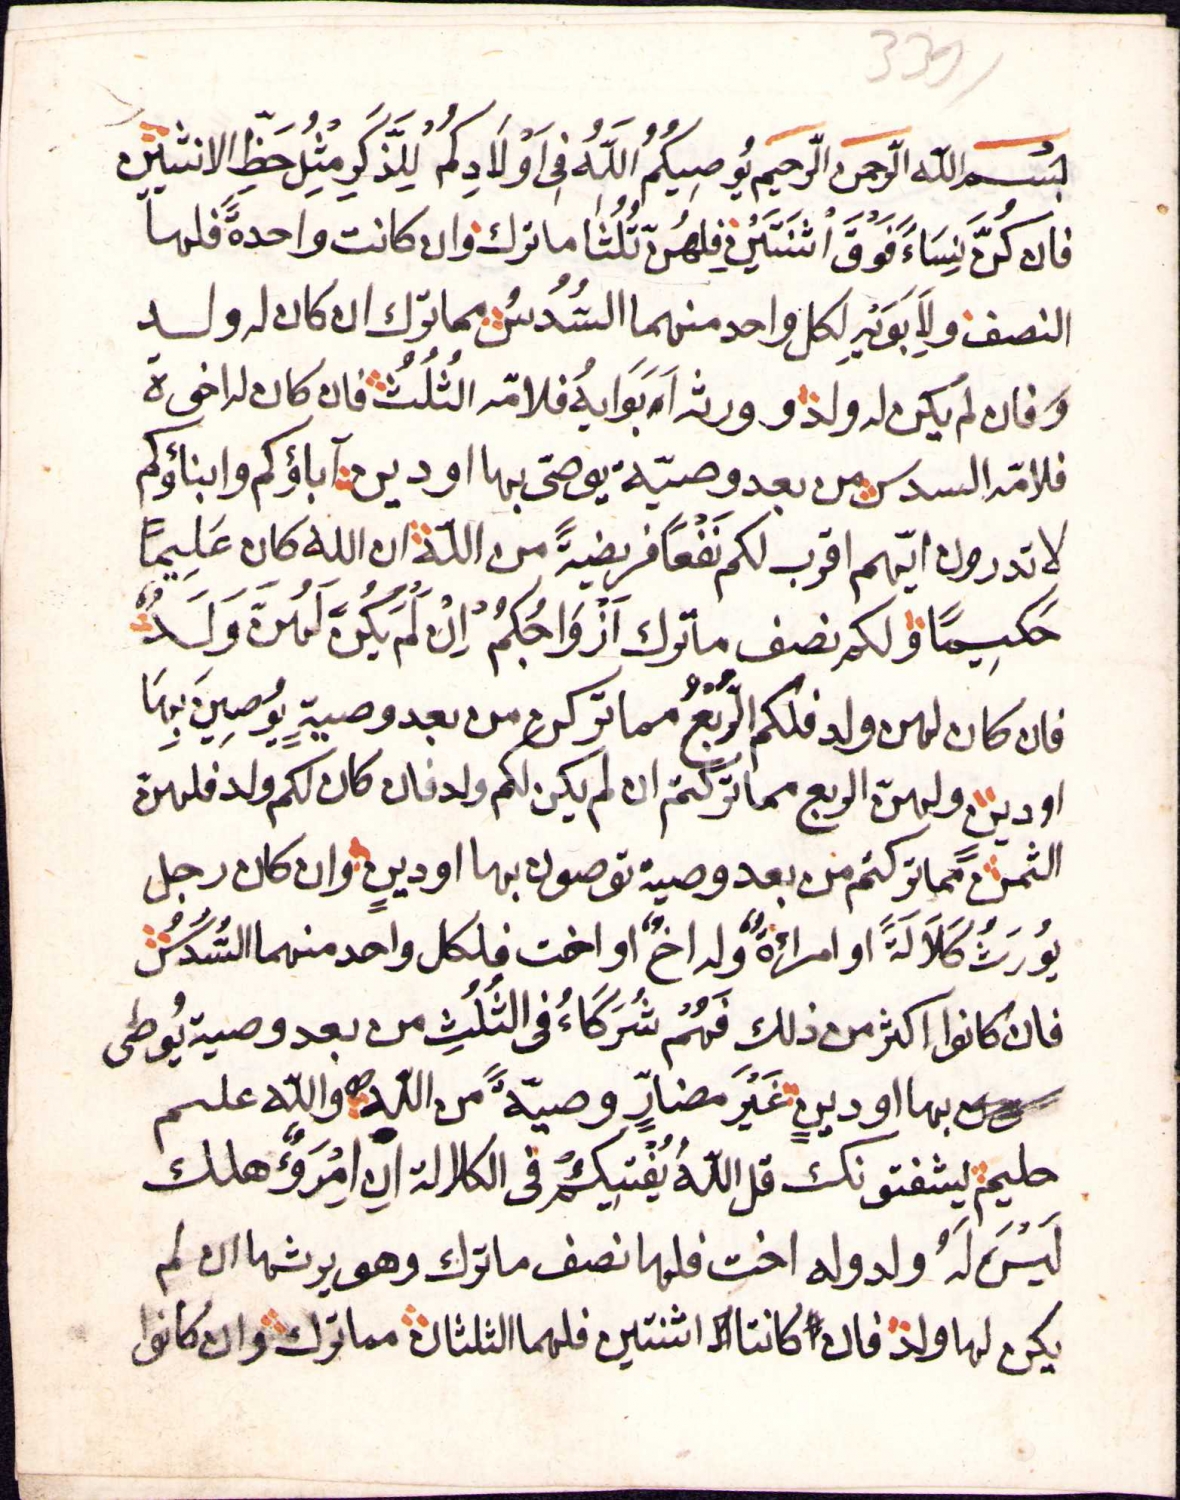 339
بسم الله الرّحمن الرّحيم يُوصِيكُمُ اللَّهُ فِى اَوْلَادِكُمْ لِلذَّكَرِ مِثْلُ حَظِّ الانثيين
فان كُنَّ نِسَاءً فَوْقَ اثْنَتَيْنِ فلهُنّ ثُلُثَا ما ترك وان كانت واحدةً فلها
النصف ولِاَبَوَيْهِ لكل واحد منهما السُّدُسُ مما ترك ان كان له ولد
و فان لم يكن له ولد و ورثه اَبَوَايهُ فلامّه الثُلُثُ فان كان له اخوة
فلامّه السدس من بعد وصيّة يوصى بها او دين آباؤكم وابناؤكم
لا تدرون ايّهم اقرب لكم نَفْعًا فريضةً من اللّه ان الله كان عَلِيمًا
حَكِيمًا ولكم نصف ما ترك اَزْوَاجُكُمْ اِنْ لَمْ يَكُنْ لَهُنَّ وَلَدٌ
فان كان لهن ولد فلكم الرُّبُعُ مما تركن من بعد وصيةٍ يُوصِينَ بِهَا
او دينٍ ولهنّ الربع مما تركتم ان لم يكن لكم ولد فان كان لكم ولد فلهن
الثمن مّما تركتم من بعد وصية توصون بها او دينٍ وان كان رجل
يُورَثُ كَلَالَةً او امرأةٌ وله اخٌ او اخت فلكل واحد منهما السُّدُسُ
فان كانوا اكثر من ذلك فَهُمْ شُرَكَاءُ فى الثُّلُثِ من بعد وصية يُوطى
بها او دينٍ غَيْرَ مضارٍّ وصيّةً من اللّه واللّه عليم
حليم يشفتونك قل اللّهُ يُفْتِيكُمْ فى الكلالة اِنِ امْرَؤٌ هلك
لَيْسَ لَهُ ولد وله اخت فلها نصف ما ترك وهو يرثها ان لم
يكن لها ولد فان كانتا اثنتين فلهما الثلثان مما ترك وان كانوا